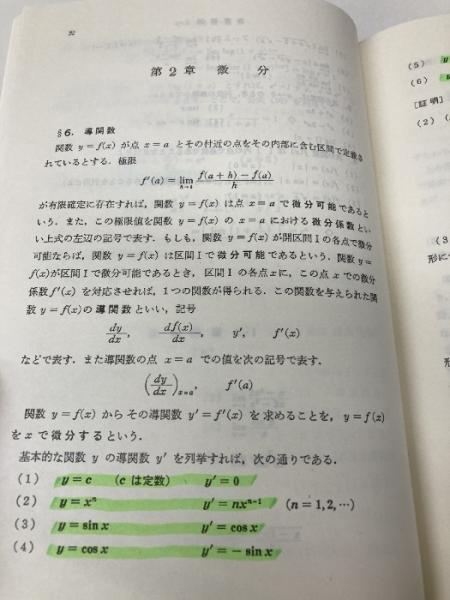 32
第2章 微 分
§6. 導関数
関数 y=f(x) が点 x=a とその付近の点をその内部に含む区間で定義さ
れているとする. 極限
f'(a) = lim_{h→0} \frac{f(a+h)-f(a)}{h}
が有限確定に存在すれば, 関数 y=f(x) は点 x=a で微分可能であると
いう. また, この極限値を関数 y=f(x) の x=a における微分係数とい
い上式の左辺の記号で表す. もしも, 関数 y=f(x) が開区間 I の各点で微分
可能ならば, 関数 y=f(x) は区間 I で微分可能であるという. 関数 y=
f(x)が区間 I で微分可能であるとき, 区間 I の各点 x に, この点 x での微分
係数 f'(x) を対応させれば, 1つの関数が得られる. この関数を与えられた関
数 y=f(x)の導関数といい, 記号
\frac{dy}{dx}, \frac{df(x)}{dx}, y', f'(x)
などで表す. また導関数の点 x=a での値を次の記号で表す.
(\frac{dy}{dx})_{x=a}, f'(a)
関数 y=f(x) からその導関数 y'=f'(x) を求めることを, y=f(x)
を x で微分するという.
基本的な関数 y の導関数 y' を列挙すれば, 次の通りである.
(1) y=c (c は定数) y'=0
(2) y=x^n y'=nx^{n-1} (n=1,2,…)
(3) y=sin x y'=cos x
(4) y=cos x y'=-sin x
(5) y
(6)
[証明]
(2) (
(3
形に